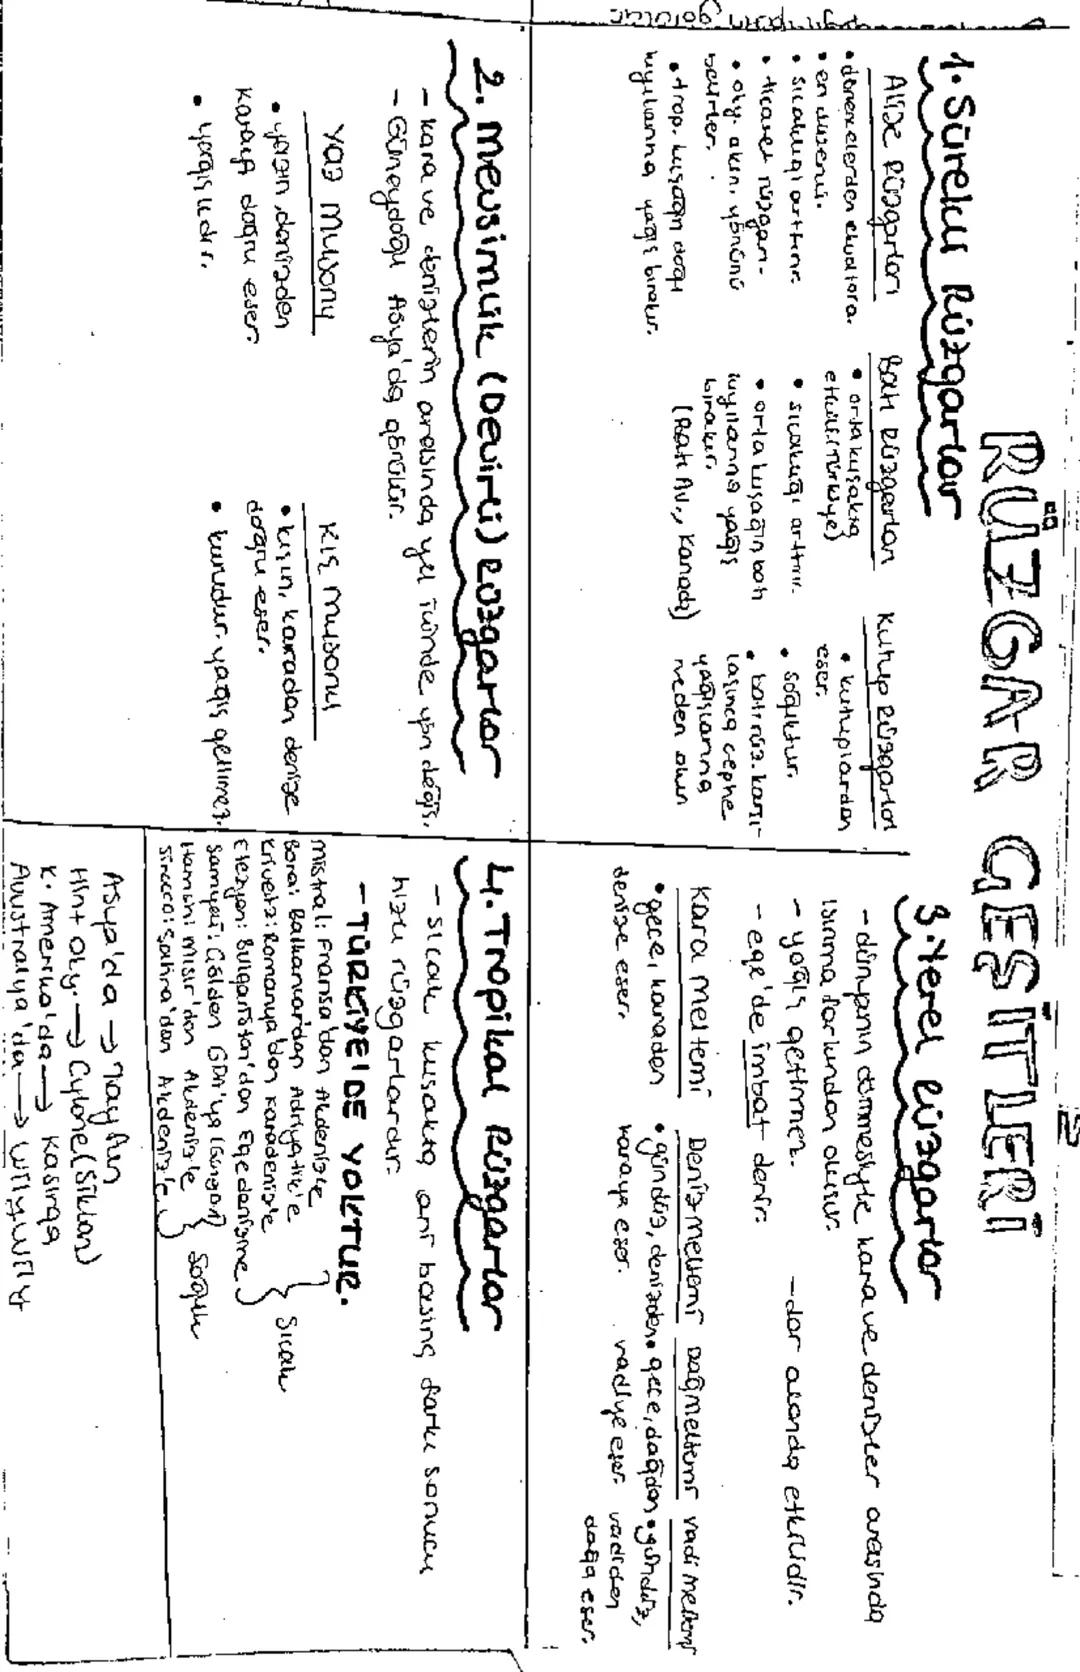 RÜZGAR ÇEŞİTLERİ
1. Sürekli Rüzgarlar
Alize Rüzgarları
• dönencelerden ekvatora.
• en düzenli.
• sıcaklığı arttırır.
• ticaret rüzgarı.
• oky. akın. yönünü
belirler.
• trop. kuşağın doğu
kıyılarına yağış bırakır.
Batı Rüzgarları
• orta kuşakta
etkili (Türkiye)
• sıcaklığı arttırır.
• orta kuşağın batı
kıyılarına yağış
bırakır.
(Batı Av., Kanada)
Kutup Rüzgarları
• kutuplardan
eser.
• soğuktur.
• batı rüz. karşı-
laşınca cephe
yağışlarına
neden olur
2. Mevsimlik (Devirli) Rüzgarlar
- kara ve denizlerin arasında yıl içinde yön değiş.
- Güneydoğu Asya'da görülür.
Yaz Musonu
• yazın, denizden
karaya doğru eser.
• yağışlıdır.
Kış Musonu
• kışın, karadan denize
doğru eser.
• kurudur. yağış getirmez.
3. Yerel Rüzgarlar
- dünyanın dönmesiyle kara ve denizler arasında
ısınma farkından oluşur.
- yağış getirmez. - dar alanda etkilidir.
- ege'de imbat denir.
Kara meltemi
• gece, karadan
denize eser.
Deniz meltemi
• gündüz, denizden
karaya eser.
Dağ meltemi
• gece, dağdan
vadiye eser.
vadi meltemi
• gündüz,
vadiden
dağa eser.
4. Tropikal Rüzgarlar
- sıcak kuşakta ani basınç farkı sonucu
hızlı rüzgarlardır.
- TÜRKİYE'DE YOKTUR.
Mistral: Fransa'dan Akdeniz'e
Bora: Balkanlar'dan Adriyatik'e
Krivetz: Romanya'dan Karadeniz'e
Etezyen: Bulgaristan'dan Ege denizine
} Sıcak
Samyeli: Çölden GDA'ya
Hamsin: Mısır'dan Akdeniz'e
Sirocco: Sahra'dan Akdeniz'e
} Soğuk
Asya'da → Tayfun
Hint oky. → Cylone (Siklon)
K. Amerika'da → Kasırga
Avustralya'da → Willy Willy